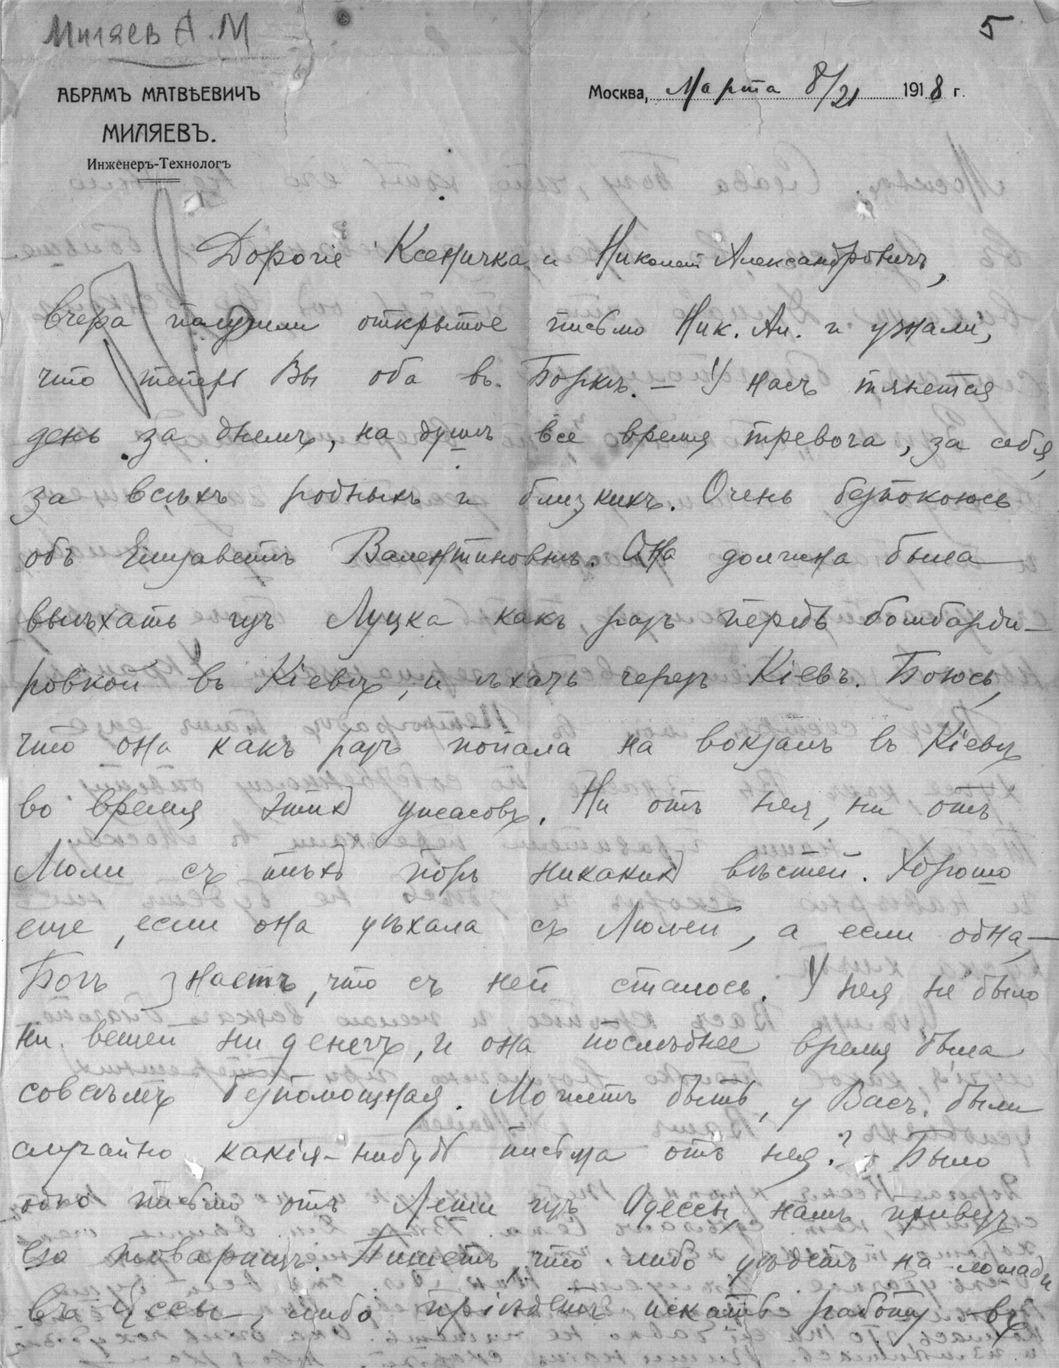 Миляев А.М
5
АБРАМЪ МАТВѢЕВИЧЪ
МИЛЯЕВЪ.
Инженеръ-Технологъ
Москва, Марта 8/21 1918 г.
Дорогіе Ксеничка и Николай Александровичъ,
вчера получили открытое письмо Ник. Ал. и узнали,
что теперь Вы оба въ Боркѣ. — У насъ тянется
день за днемъ, на душѣ все время тревога, за себя,
за всѣхъ родныхъ и близкихъ. Очень безпокоюсь
объ Елизаветѣ Валентиновнѣ. Она должна была
выѣхать изъ Луцка какъ разъ передъ бомбарди-
ровкой въ Кіевѣ, и ѣхать черезъ Кіевъ. Боюсь,
что она какъ разъ попала на вокзалъ въ Кіевѣ
во время этихъ ужасовъ. Ни отъ нея, ни отъ
Люли съ тѣхъ поръ никакихъ вѣстей. Хорошо
еще, если она уѣхала съ Люлей, а если одна, —
Богъ знаетъ, что съ ней сталось. У нея не было
ни вещей ни денегъ, и она послѣднее время была
совсѣмъ безпомощная. Можетъ быть, у Васъ были
случайно какія-нибудь письма отъ нея? Было
одно письмо отъ Лели изъ Одессы, намъ привезъ
его товарищъ. Пишетъ, что либо уѣдетъ на лошади
въ Ессы, либо пріѣдетъ искать работу въ